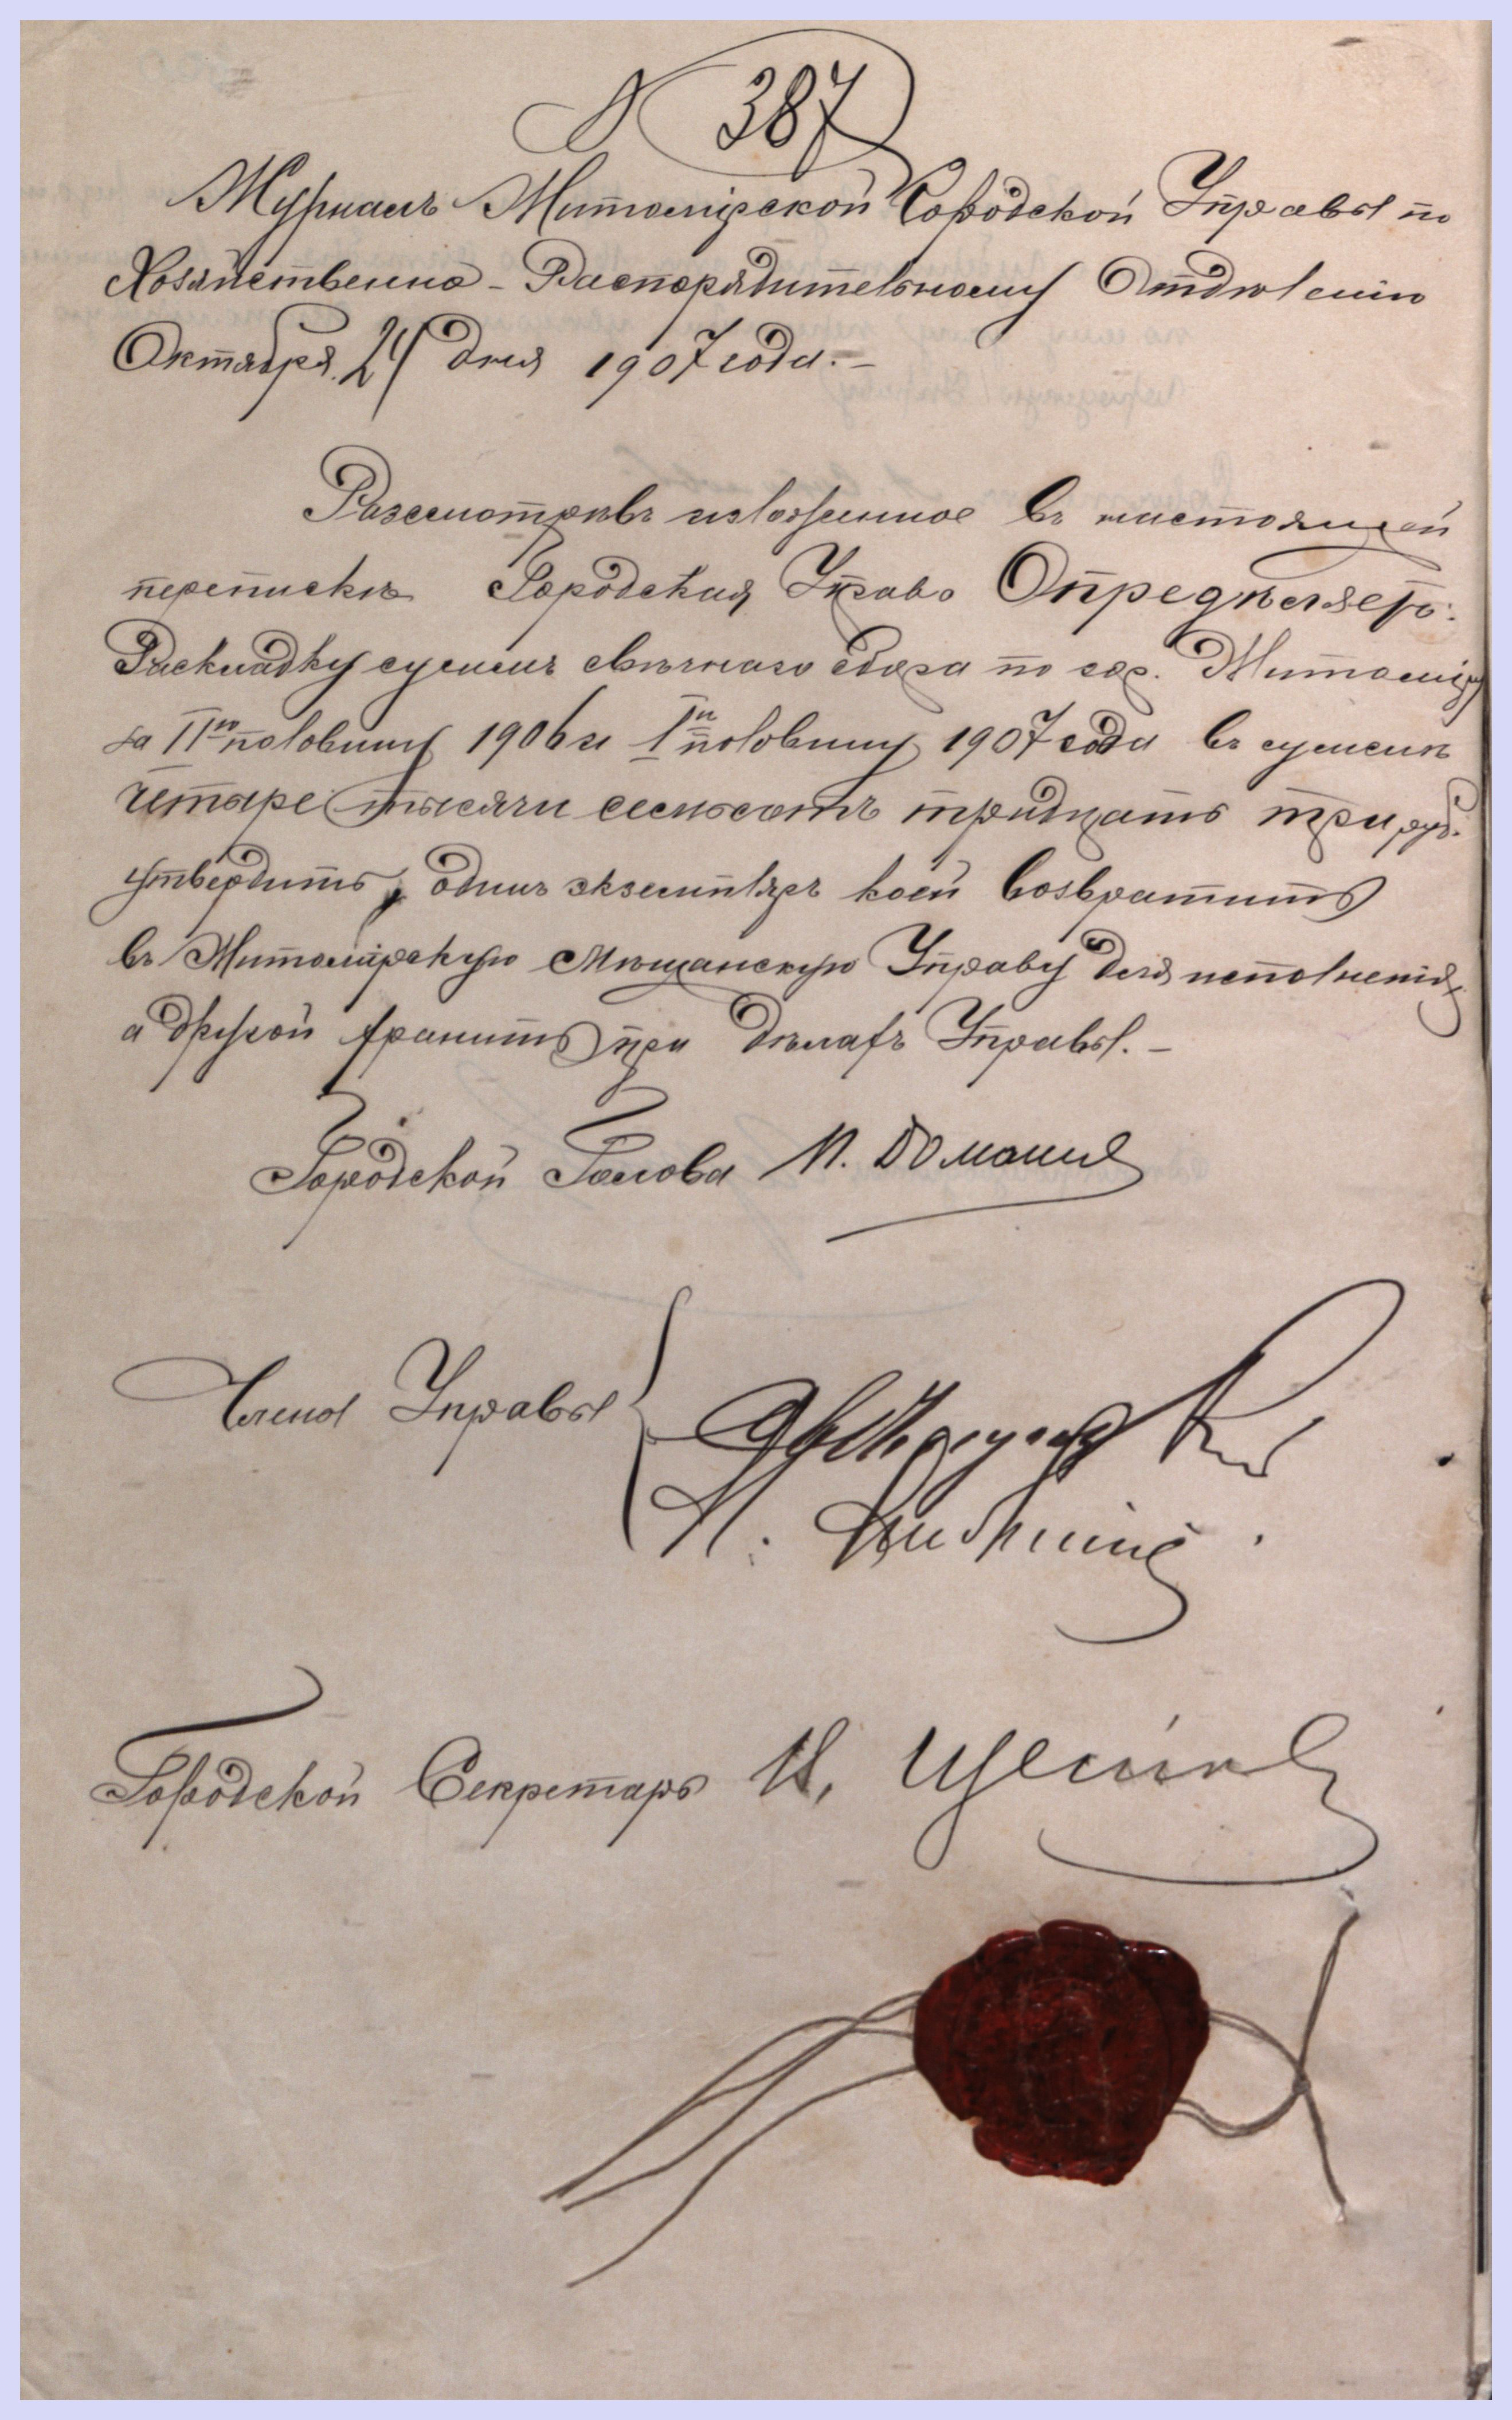 № 387
Журналъ Житомірской Городской Управы по
Хозяйственно-Распорядительному Отдѣленію
Октября 24 дня 1907 года. –
Разсмотрѣвъ изложенное въ настоящей
перепискѣ Городская Управа Опредѣляетъ:
Раскладку суммъ свѣчнаго сбора по гор. Житоміру
за IIю половину 1906 и Iю половину 1907 года въ суммѣ
четыре тысячи семьсотъ тридцать три руб.
утвердить, одинъ экземпляръ коей возвратить
въ Житомірскую Мѣщанскую Управу для исполненія,
а другой хранить при дѣлахъ Управы. –
Городской Голова И. Доманев
Члены Управы
Городской Секретарь И.